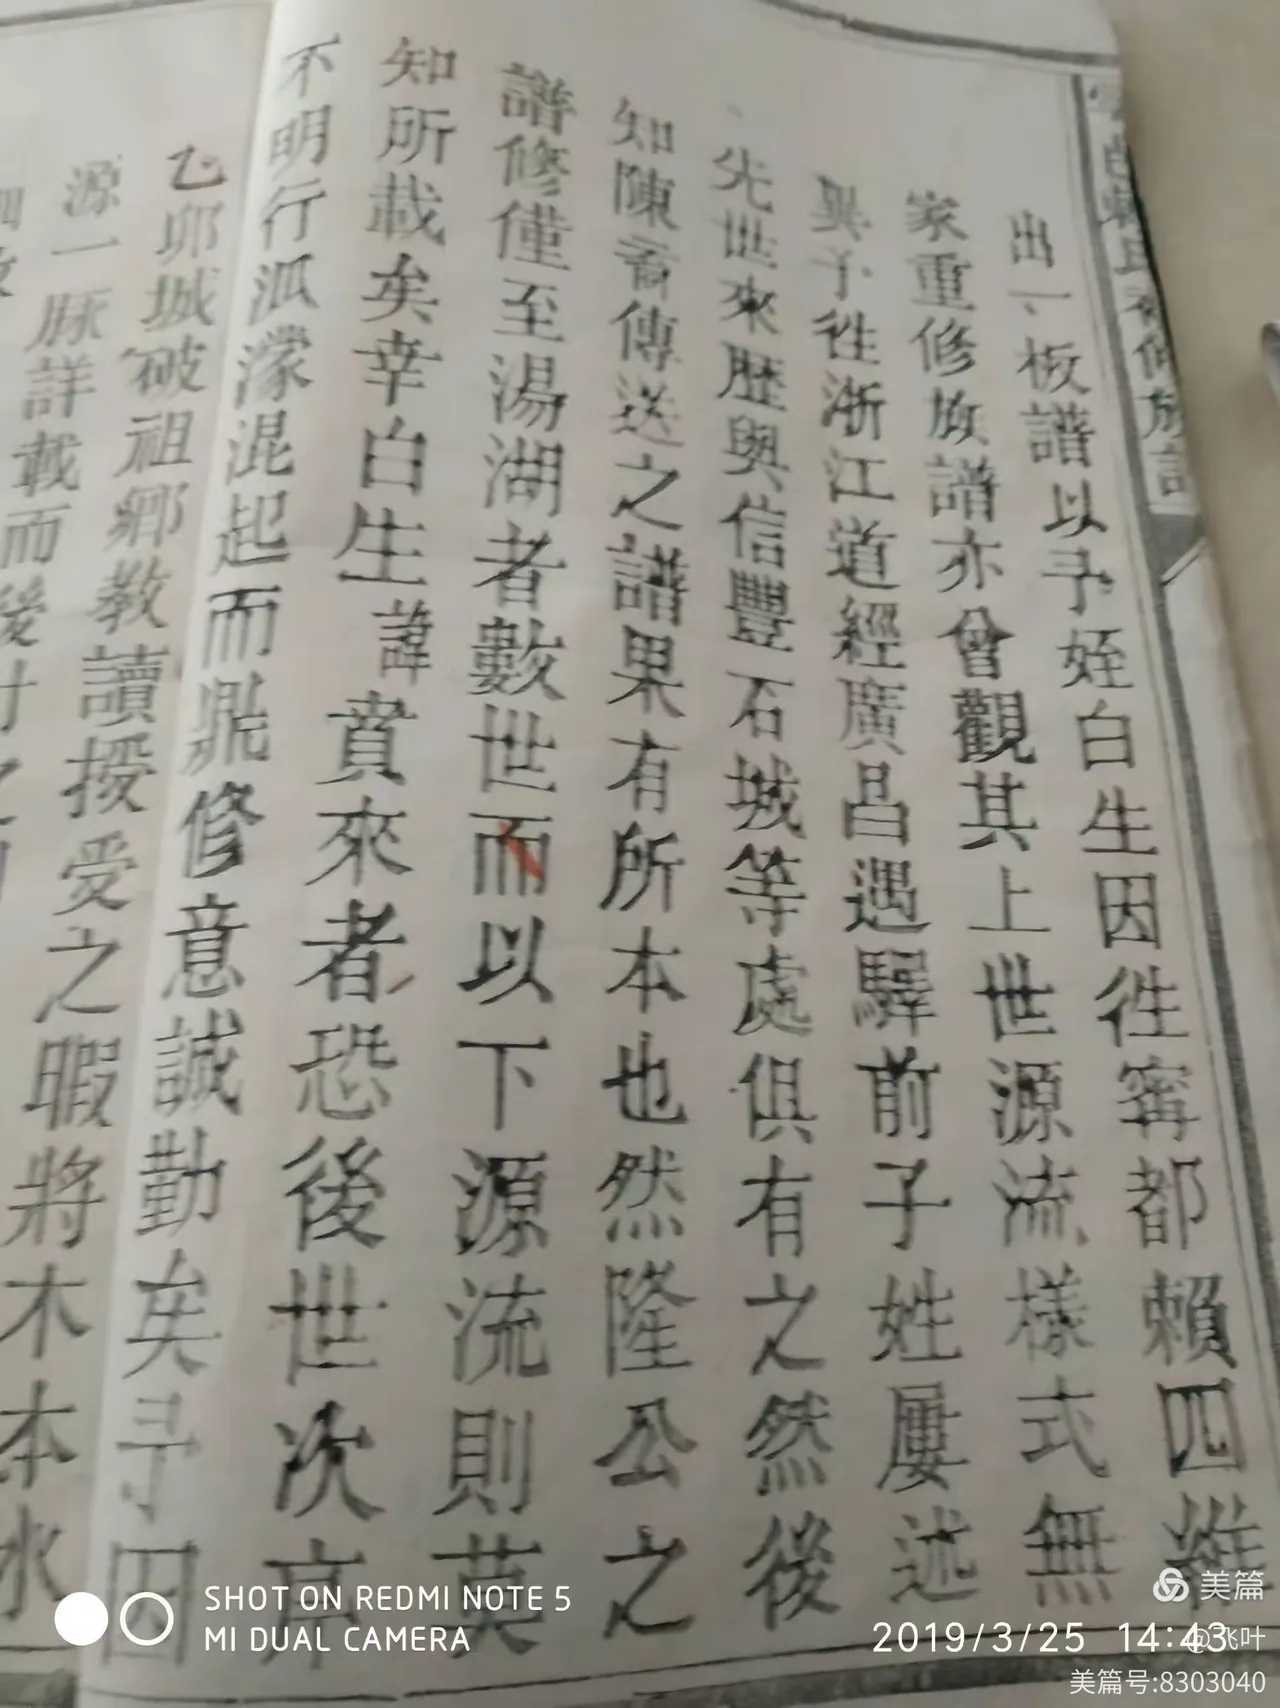 出一板譜以予姪白生因徃甯都賴四
家重修族譜亦曾觀其上世源流樣式無
異予徃浙江道經廣昌遇驛前子姓屢述
先世來歷與信豐石城等處俱有之然後
知陳裔傳送之譜果有所本也然隆公之
譜修僅至湯湖者數世而以下源流則莫
知所載矣幸白生諱賁來者恐後世次
不明行派濛混起而鼎修意誠勤矣予因
乙卯城破祖鄉教讀授受之暇將木本水
源一脉詳載而後
SHOT ON REDMI NOTE 5
MI DUAL CAMERA
2019/3/25 14:43
美篇
美篇号:8303040